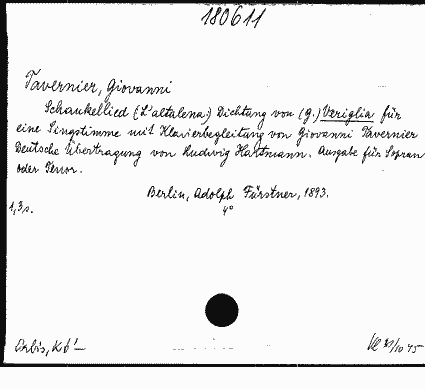 180611
Tavernier, Giovanni
Schaukellied (L'altalena.) Dichtung von (G.) Veriglia für
eine Singstimme mit Klavierbegleitung von Giovanni Tavernier
Deutsche Übertragung von Ludwig Hartmann. Ausgabe für Sopran
oder Tenor.
Berlin, Adolph Fürstner, 1893.
1,3 s. 4°
Orbis, Kč